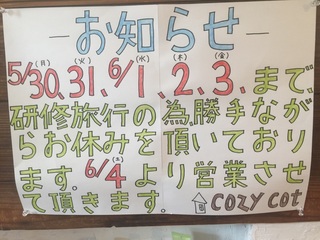 —お知らせ—
5/30(月)、31(火)、6/1(水)、2(木)、3(金)、まで、
研修旅行の為、勝手なが
らお休みを頂いており
ます。6/4(土)より営業させ
て頂きます。COZY COT